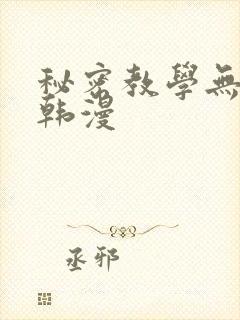 秘密教學無
韩漫
丞邪